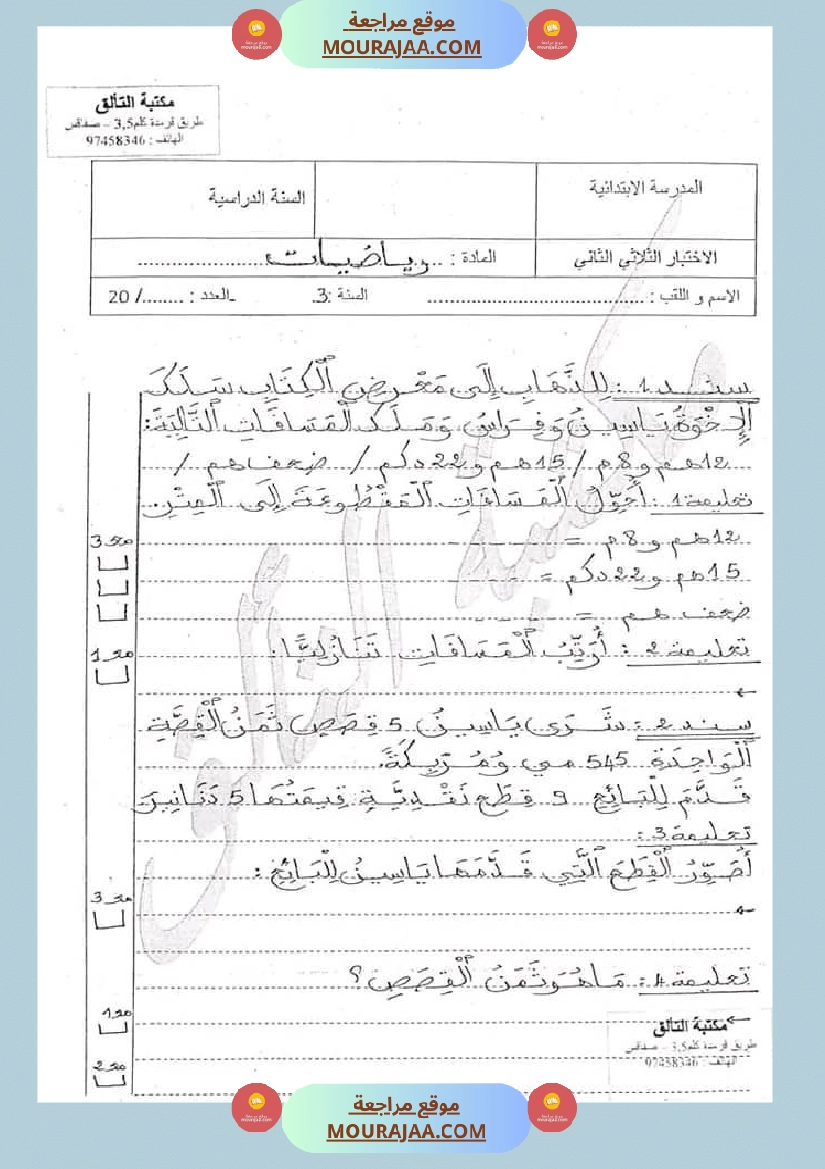 موقع مراجعة
MOURAJAA.COM
مكتبة التألق
طريق قرمدة كلم3,5 – صفاقس
الهاتف : 97458346
المدرسة الابتدائية
السنة الدراسية
الاختبار الثلاثي الثاني
المادة : ...رياضيات......................
الاسم و اللقب : ......................................
السنة :3.
العدد : ......../ 20
سند 1 : لِلذَّهَابِ إِلَى مَعْرِضِ الْكِتَابِ سَلَكَ
الْإِخْوَةُ يَاسِينُ وَفِرَاسُ وَمَلَكُ الْمَسَافَاتِ التَّالِيَةَ:
12هم و 8م / 15هم و 22دكم / ضعف هم /
تعليمة 1 : أُحَوِّلُ الْمَسَافَاتِ الْمَقْطُوعَةَ إِلَى الْمِتْرِ
12هم و 8م =
مع 3
15هم و 22دكم =
ضعف هم =
تعليمة 2 : أُرَتِّبُ الْمَسَافَاتِ تَنَازُلِيًّا :
مع 1
سند 2 : شَرَى يَاسِينُ 5 قِصَصٍ ثَمَنُ الْقِصَّةِ
الْوَاحِدَةِ 545 مي وُ مُرَبِكَةً.
قَدَّمَ لِلْبَائِعِ 9 قِطَعٍ نَقْدِيَّةٍ قِيمَتُهَا 5 دَنَانِيرَ
تعليمة 3 :
أُصَوِّرُ الْقِطَعَ الَّتِي قَدَّمَهَا يَاسِينُ لِلْبَائِعِ :
مع 3
تعليمة 4 : مَا هُوَ ثَمَنُ الْقِصَصِ ؟
مع 1
مكتبة التألق
طريق قرمدة كلم3,5 – صفاقس
الهاتف : 97458346
مع 2
موقع مراجعة
MOURAJAA.COM